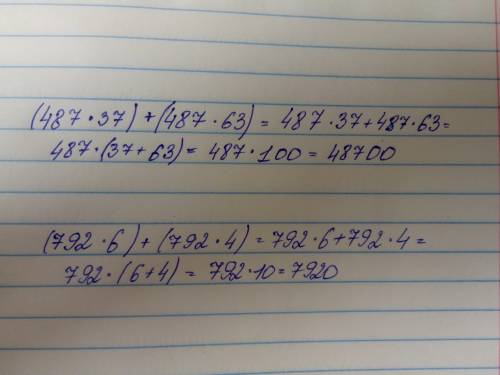 (487·37)+(487·63)=487·37+487·63=
487·(37+63)=487·100=48700
(792·6)+(792·4)=792·6+792·4=
792·(6+4)=792·10=7920